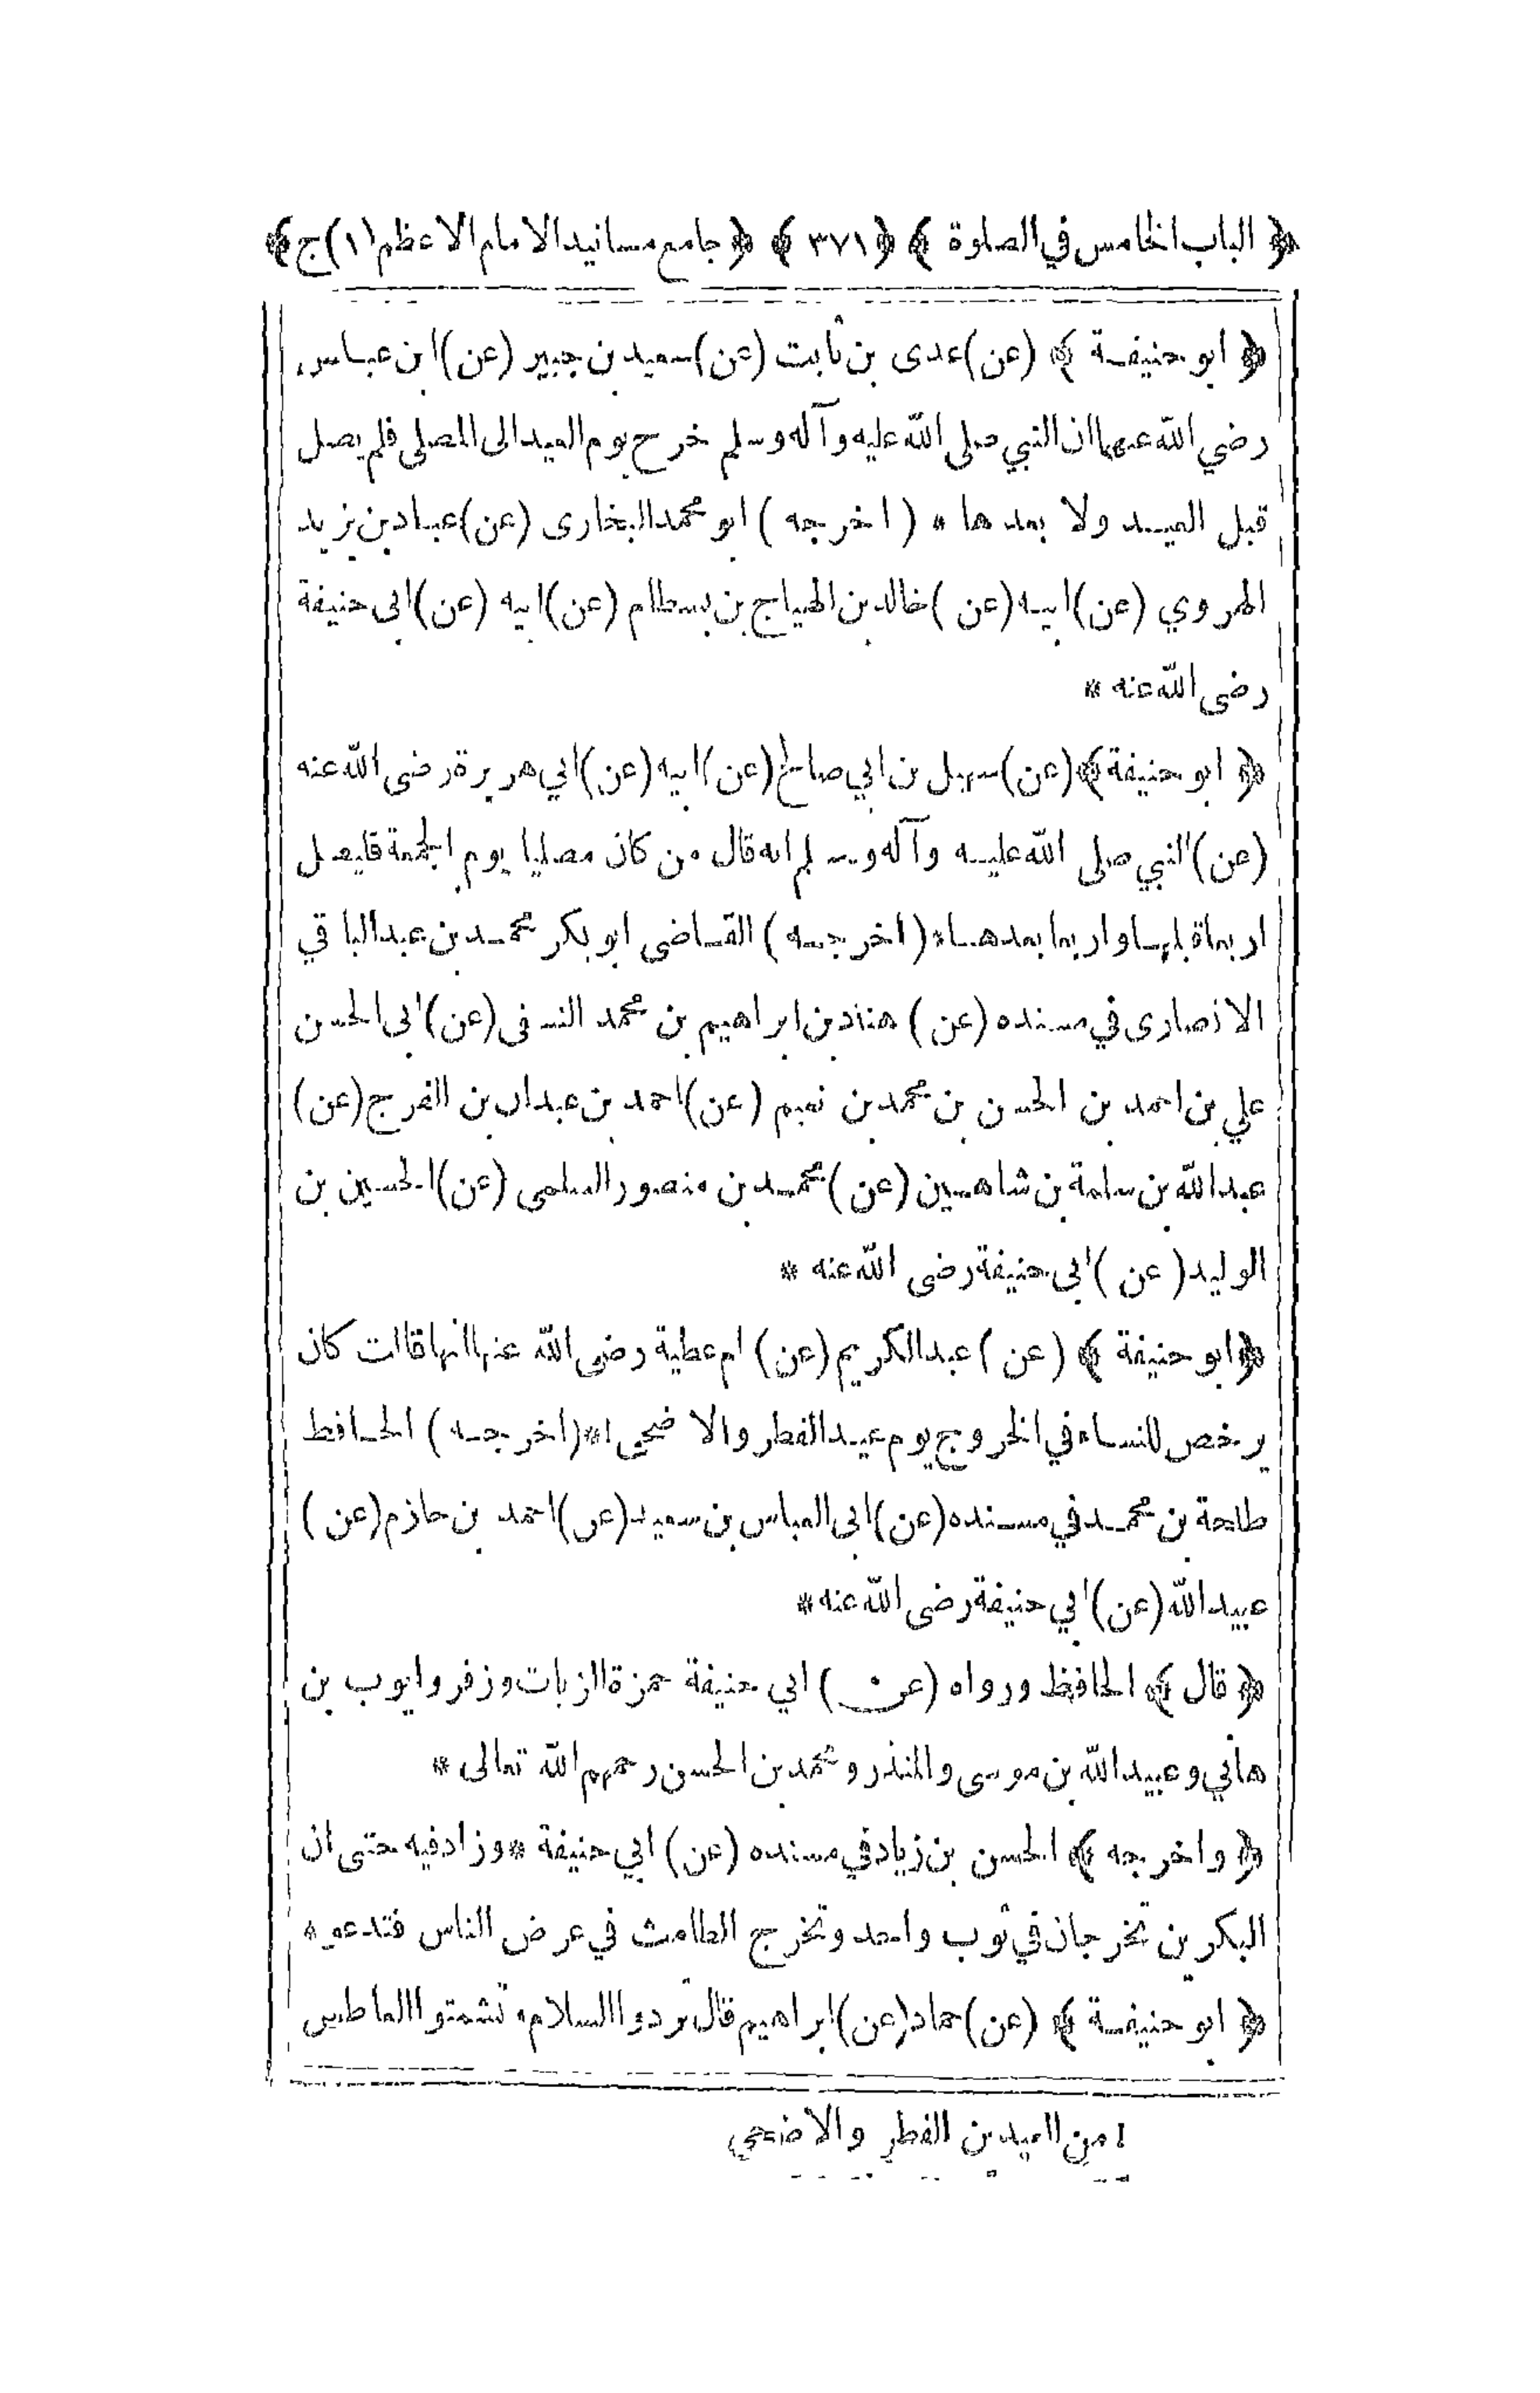 ﴿ الباب الخامس في الصلوة ﴾ ﴿ ٣٧١ ﴾ ﴿ جامع مسانيد الامام الاعظم (١) ج ﴾
﴿ ابو حنيفة ﴾ (عن) عدى بن ثابت (عن) سعيد بن جبير (عن) ابن عباس
رضي الله عنهما ان النبي صلى الله عليه وآله وسلم خرج يوم العيد الى المصلى فلم يصل
قبل العيد ولا بعدها * ( اخرجه ) ابو محمد البخارى (عن) عباد بن زيد
الهروي (عن) ابيه (عن ) خالد بن الهياج بن بسطام (عن) ابيه (عن) ابى حنيفة
رضى الله عنه *
﴿ ابو حنيفة ﴾ (عن) سهيل بن ابي صالح (عن) ابيه (عن) ابي هريرة رضى الله عنه
(عن) النبي صلى الله عليه وآله وسلم انه قال من كان مصليا يوم الجمعة فليصل
اربعا قبلها واربعا بعدها * ( اخرجه ) القاضى ابو بكر محمد بن عبد الباقي
الانصارى في مسنده (عن ) هناد بن ابراهيم بن محمد النسفى (عن) ابى الحسن
علي بن احمد بن الحسن بن محمد بن نعيم (عن) احمد بن عبدان بن الفرج (عن)
عبد الله بن سلمة بن شاهين (عن ) محمد بن منصور السلمى (عن) الحسين بن
الوليد ( عن ) ابى حنيفة رضى الله عنه *
﴿ ابو حنيفة ﴾ ( عن ) عبد الكريم (عن) ام عطية رضى الله عنها انها قالت كان
يرخص للنساء في الخروج يوم عيد الفطر والاضحى ١* ( اخرجه ) الحافظ
طلحة بن محمد في مسنده (عن) ابى العباس بن سعيد (عن) احمد بن حازم (عن )
عبيد الله (عن) ابي حنيفة رضى الله عنه *
﴿ قال ﴾ الحافظ ورواه (عن ) ابي حنيفة حمزة الزيات وزفر وايوب بن
هانى وعبيد الله بن موسى والمنذر ومحمد بن الحسن رحمهم الله تعالى *
﴿ واخرجه ﴾ الحسن بن زياد في مسنده (عن) ابي حنيفة * وزاد فيه حتى ان
البكرين تخرجان في ثوب واحد وتخرج الطامث في عرض الناس فتدعو *
﴿ ابو حنيفة ﴾ (عن) حماد (عن) ابراهيم قال يردوا السلام وتشمتوا العاطس
١ من العيدين الفطر والاضحى